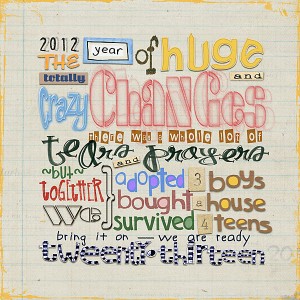 2012
THE year of huge
totally and
crazy CHANGES
there was a whole lot of
tears and prayers
~but~ adopted 3 boys
TOGETHER bought a house
we survived 4 teens
bring it on — we are ready
twenty thirteen